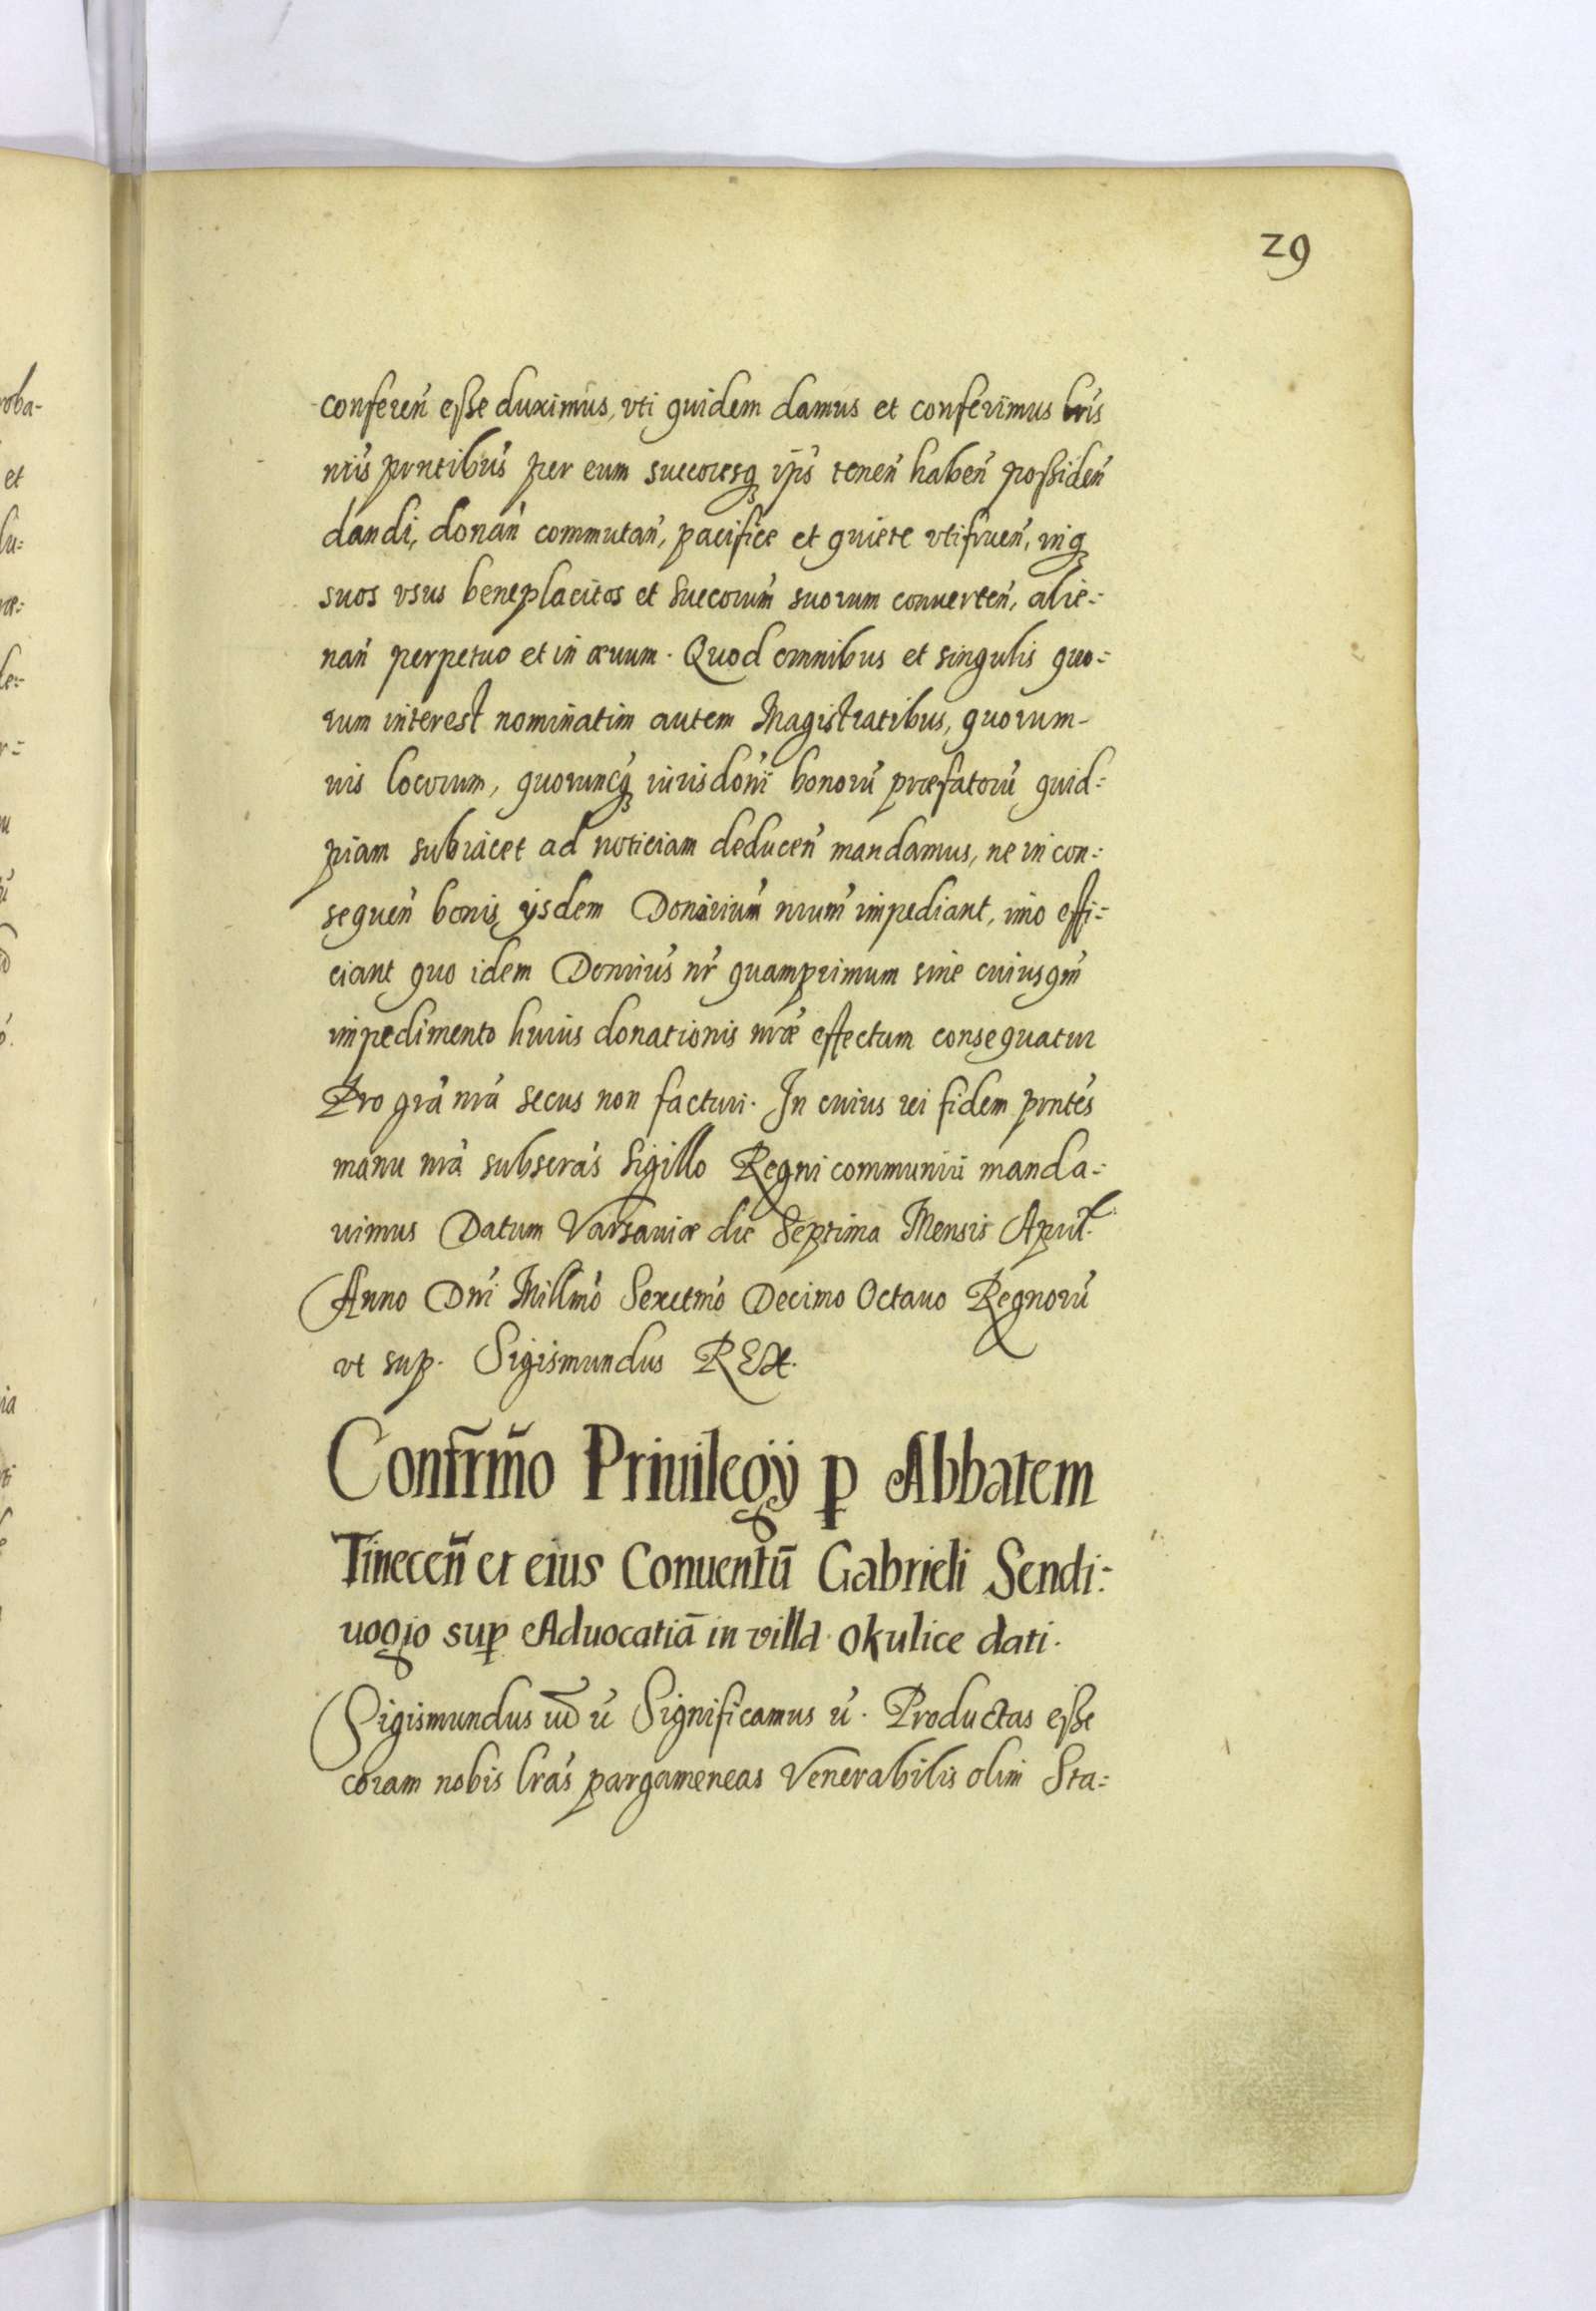 29
conferen̄ eſse duximus, vti quidem damus et conferimus lrīs
nrīs pn̄tibus per eum succoresq̨ ip̄s tenen̄ haben̄ poſsiden̄
dandi, donan̄ commutan̄, pacifice et quiete vtifruen̄, inq̨
suos vsus beneplacitos et succorum̄ suorum conuerten̄, alie=
nan̄ perpetuo et in æuum. Quod omnibus et singulis quo=
rum interest nominatim autem Magistratibus, quorum-
uis locorum, quoruncq̨ iurisdōni bonorū præfatorū quid=
piam subiacet ad noticiam deducen̄ mandamus, ne in con=
sequen̄ bonis ijsdem Donirium̄ nrum̄ impediant, imo effi=
ciant quo idem Donrius̄ nr̄ quamprimum sine cuiusqm̄
impedimento huius donationis nrǣ effectum consequatur
Pro grā nrā secus non facturi. In cuius rei fidem pn̄tes
manu nrā subscrās Sigillo Regni communiri manda=
uimus Datum Varsauiæ die Septima Mensis Aprīl.
Anno Dnī Millmō Sexctmō Decimo Octauo Regnorū
vt sup. Sigismundus REX.
Confrm̄o Priuilegÿ p̱ Abbatem
Tinecen̄ et eius Conuentū Gabrieli Sendi=
uogio sup̱ Aduocatiā in villa Okulice dati.
Sigismundus Significamus Productas eſse
coram nobis lrās pargameneas Venerabilis olim Sta=
oba-
et
lu=